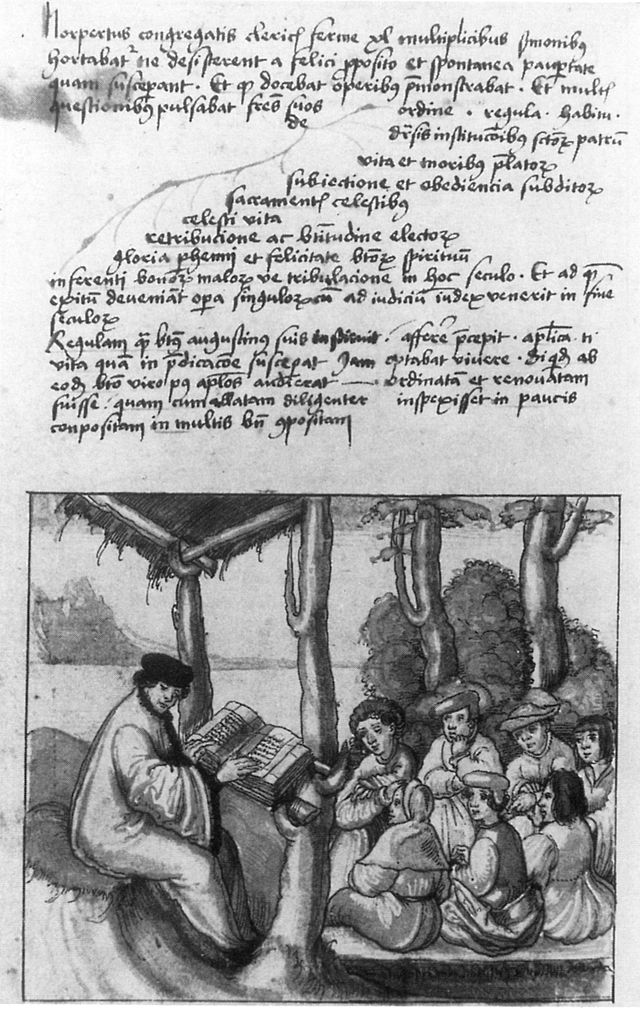 Norpertus congregatis clericis ferme xl multiplicibus sermonibus
hortabatr ne desisterent a felici pposito et spontanea paupertate
quam susceperant . Et qd docebat operibus pmonstrabat . Et multis
questionibus pulsabat fres suos ordine . regula . habitu .
de dūsis institucōibus sctorꝝ patrū
vita et moribus plator
subiectione et obediencia subditorꝝ
sacramentis celestibus
celesti vita
retribucione ac btitudine electorꝝ
gloria phenni et felicitate btorꝝ spirituū
inferenti bonorꝝ malorꝝ ve tribulacione in hoc seculo . Et ad qm
exitū deveniāt opa singulorꝝ cū ad iudiciū iudex venerit in fine
seculorꝝ
Regulam quā btus augustinus suis instituit . afferre pcepit . aplica . n
vita quā in pdicacōe susceperat Jam optabat vivere . Siqd ab
eodē bto viro pus aplos audierat ordinatā et renovatam
fuisse . quam cum allatam diligenter inspexisset in paucis
conpositam in multis bn ꝯpositam